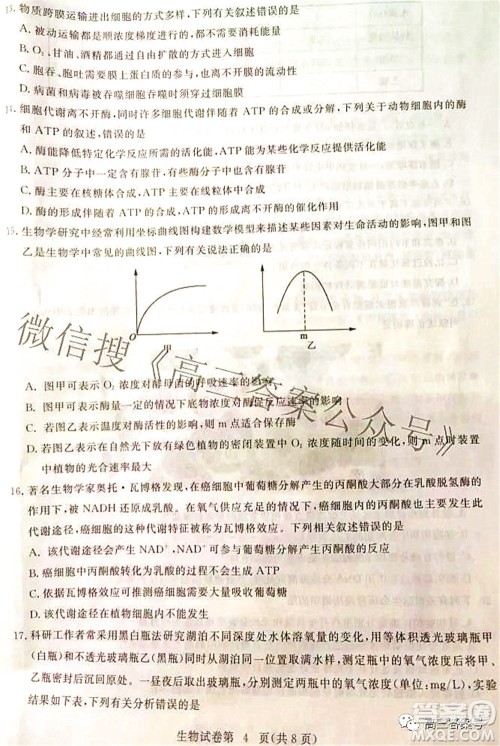 13. 物质跨膜运输进出细胞的方式多样,下列有关叙述错误的是
A. 被动运输都是顺浓度梯度进行的,都不需要消耗能量
B. O₂、甘油、酒精都通过自由扩散的方式进入细胞
C. 胞吞、胞吐需要膜上蛋白质的参与,更离不开膜的流动性
D. 病菌和病毒被吞噬细胞吞噬时依赖膜上的载体蛋白
14. 细胞代谢离不开酶,同时许多细胞代谢伴随着 ATP 的合成或分解,下列关于动物细胞内的酶
和 ATP 的叙述,错误的是
A. 酶能降低特定化学反应所需的活化能,ATP 能为某些化学反应提供活化能
B. ATP 分子中一定含有腺苷,有些酶分子中也含有腺苷
C. 酶主要在核糖体合成,ATP 主要在线粒体合成
D. 酶的合成离不开 ATP,ATP 的合成离不开酶的催化作用
15. 生物学研究中经常利用坐标曲线图构建数学模型来描述某些因素对生命活动的影响,图甲和图
乙是生物学中常见的曲线图,下列有关说法正确的是
O
甲
m
乙
A. 图甲可表示 O₂ 浓度对酵母菌的呼吸速率的影响
B. 图甲可表示酶量一定的情况下底物浓度对酶
C. 若图乙表示温度对酶活性的影响,则 m 点适合保存酶
D. 若图乙表示在自然光下放有绿色植物的密闭装置中 O₂ 浓度随时间的变化,则 m 点时装置
中植物的光合速率最大
16. 著名生物学家奥托·瓦博格发现,在癌细胞中葡萄糖分解产生的丙酮酸大部分在乳酸脱氢酶的作
用下,被 NADH 还原成乳酸。在氧气供应充足的情况下,癌细胞的丙酮酸代谢也主要发生此
代谢途径,癌细胞的这种代谢特征被称为瓦博格效应。下列相关叙述错误的是
A. 该代谢途径会产生 NAD⁺,NAD⁺可参与葡萄糖分解产生丙酮酸的反应
B. 癌细胞中丙酮酸转化为乳酸的过程不会生成 ATP
C. 依据瓦博格效应可推测癌细胞需大量吸收葡萄糖
D. 该代谢途径在生物体内不能发生
17. 科研工作者常采用黑白瓶法研究湖泊不同深度处水体溶氧量的变化,用等体积透光玻璃瓶甲
(白瓶)和不透光玻璃瓶乙(黑瓶)同时从湖泊一定深度处取水样,测定瓶中的氧气浓度后将瓶
密封后沉回原处。一昼夜后取出两瓶,分别测定两瓶中的氧气浓度(单位:mg/L),实验
结果如下表,下列分析错误的是
生物试卷第 4 页(共 8 页)
微信搜《高三答案公众号》
高三答案号
答案圈
MXQE.COM